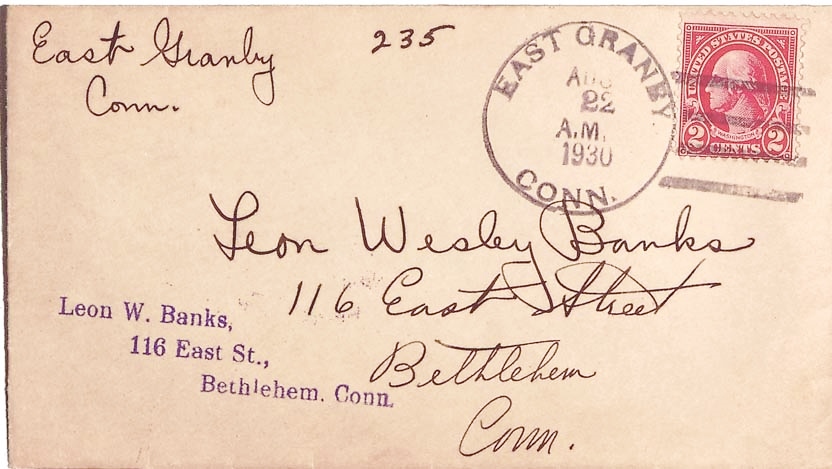 East Granby
Conn.
235
EAST GRANBY
AUG
22
A.M.
1930
CONN.
UNITED STATES POSTAGE
WASHINGTON
2 CENTS 2
Leon Wesley Banks
116 East Street
Bethlehem
Conn.
Leon W. Banks,
116 East St.,
Bethlehem. Conn.